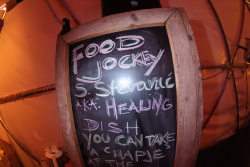 FOOD
JOCKEY
S. Stevović
A.K.A. HEALING
DISH
YOU CAN TAKE
A CHAPJE